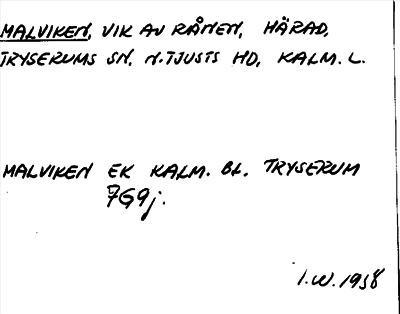 MALVIKEN, VIK AV RÅNEN, HÄRAD,
TRYSERUMS SN, N. TJUSTS HD, KALM. L.
MALVIKEN EK KALM. BL. TRYSERUM
7G9j.
I.W. 1958